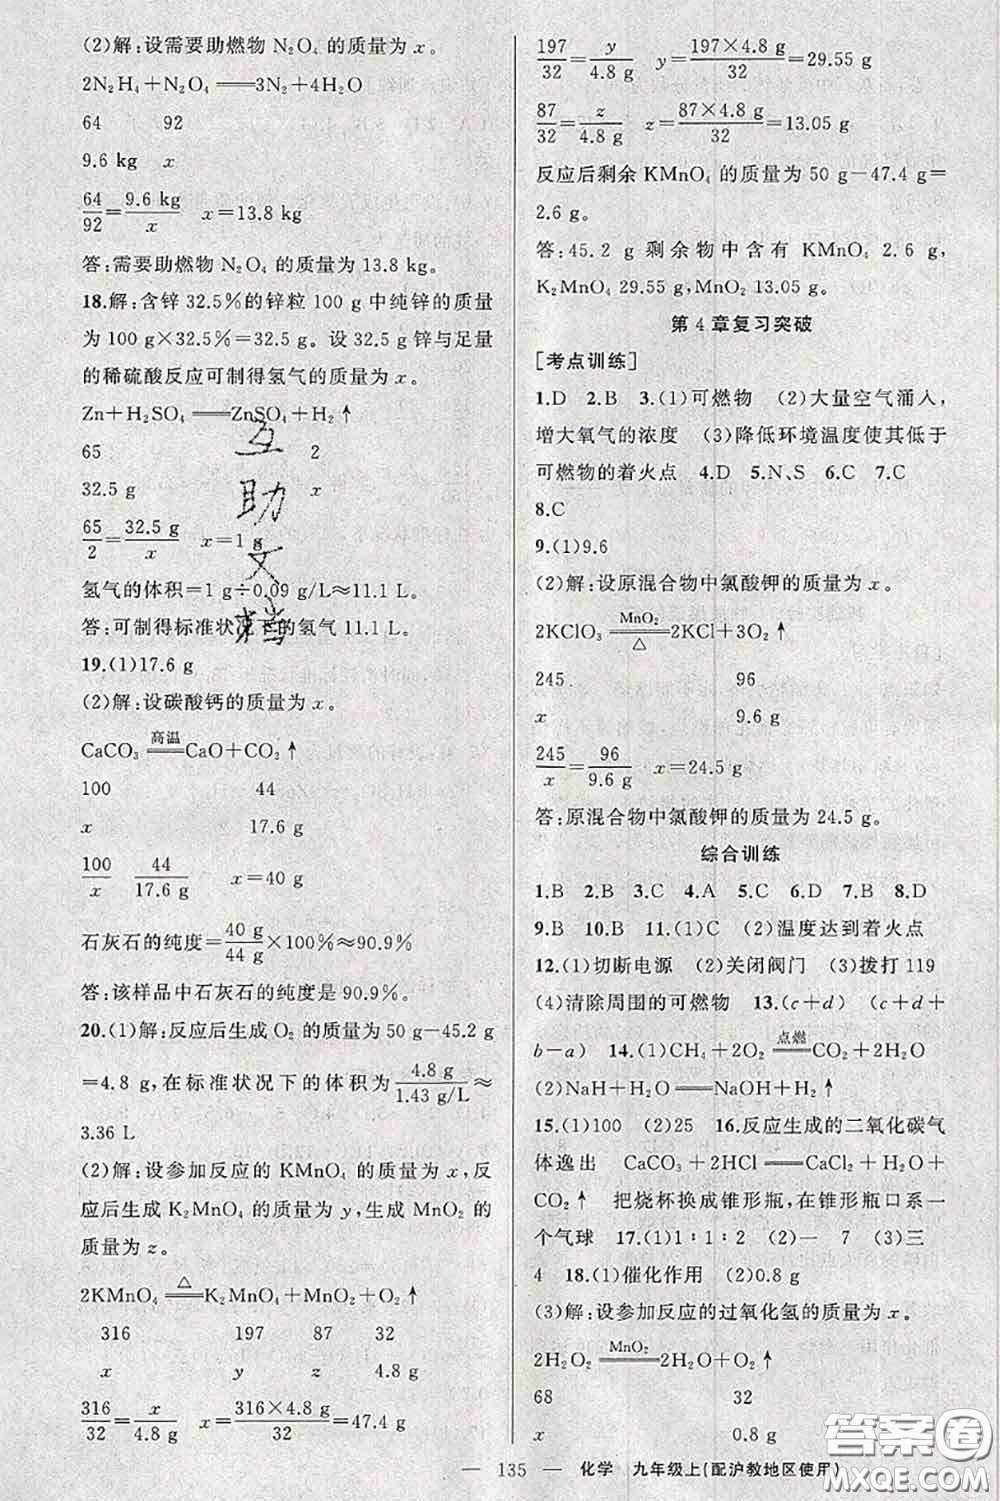 (2)解:设需要助燃物 N₂O₄ 的质量为 x。
2N₂H₄+N₂O₄══3N₂+4H₂O
64 92
9.6 kg x
64/92=9.6 kg/x x=13.8 kg
答:需要助燃物 N₂O₄ 的质量为 13.8 kg。
18.解:含锌 32.5%的锌粒 100 g 中纯锌的质量
为 100 g×32.5%=32.5 g。设 32.5 g 锌与足量
的稀硫酸反应可制得氢气的质量为 x。
Zn+H₂SO₄══ZnSO₄+H₂↑
65 2
32.5 g x
65/2=32.5 g/x x=1 g
氢气的体积=1 g÷0.09 g/L≈11.1 L。
答:可制得标准状况下的氢气 11.1 L。
19.(1)17.6 g
(2)解:设碳酸钙的质量为 x。
CaCO₃ 高温══ CaO+CO₂↑
100 44
x 17.6 g
100/x 44/17.6 g x=40 g
石灰石的纯度=40 g/44 g×100%≈90.9%
答:该样品中石灰石的纯度是 90.9%。
20.(1)解:反应后生成 O₂ 的质量为 50 g-45.2 g
=4.8 g,在标准状况下的体积为4.8 g/1.43 g/L≈
3.36 L
(2)解:设参加反应的 KMnO₄ 的质量为 x,反
应后生成 K₂MnO₄ 的质量为 y,生成 MnO₂ 的
质量为 z。
2KMnO₄ △══ K₂MnO₄+MnO₂+O₂↑
316 197 87 32
x y z 4.8 g
316/32=x/4.8 g x=316×4.8 g/32=47.4 g
互
助
文
档
197/32=y/4.8 g y=197×4.8 g/32=29.55 g
87/32=z/4.8 g z=87×4.8 g/32=13.05 g
反应后剩余 KMnO₄ 的质量为 50 g-47.4 g=
2.6 g。
答:45.2 g 剩余物中含有 KMnO₄ 2.6 g,
K₂MnO₄ 29.55 g,MnO₂ 13.05 g。
第 4 章复习突破
[考点训练]
1.D 2.B 3.(1)可燃物 (2)大量空气涌入,
增大氧气的浓度 (3)降低环境温度使其低于
可燃物的着火点 4.D 5.N、S 6.C 7.C
8.C
9.(1)9.6
(2)解:设原混合物中氯酸钾的质量为 x。
2KClO₃ MnO₂══△ 2KCl+3O₂↑
245 96
x 9.6 g
245/x=96/9.6 g x=24.5 g
答:原混合物中氯酸钾的质量为 24.5 g。
综合训练
1.B 2.B 3.C 4.A 5.C 6.D 7.B 8.D
9.D 10.B 11.(1)C (2)温度达到着火点
12.(1)切断电源 (2)关闭阀门 (3)拨打 119
(4)清除周围的可燃物 13.(c+d) (c+d+
b-a) 14.(1)CH₄+2O₂ 点燃══ CO₂+2H₂O
(2)NaH+H₂O══NaOH+H₂↑
15.(1)100 (2)25 16.反应生成的二氧化碳气
体逸出 CaCO₃+2HCl══CaCl₂+H₂O+
CO₂↑ 把烧杯换成锥形瓶,在锥形瓶口系一
个气球 17.(1)1∶1∶2 (2)一 7 (3)三
4 18.(1)催化作用 (2)0.8 g
(3)解:设参加反应的过氧化氢的质量为 x。
2H₂O₂ MnO₂══ 2H₂O+O₂↑
68 32
x 0.8 g
— 135 — 化学 九年级上(配沪教地区使用)
答案圈
MXQE.COM